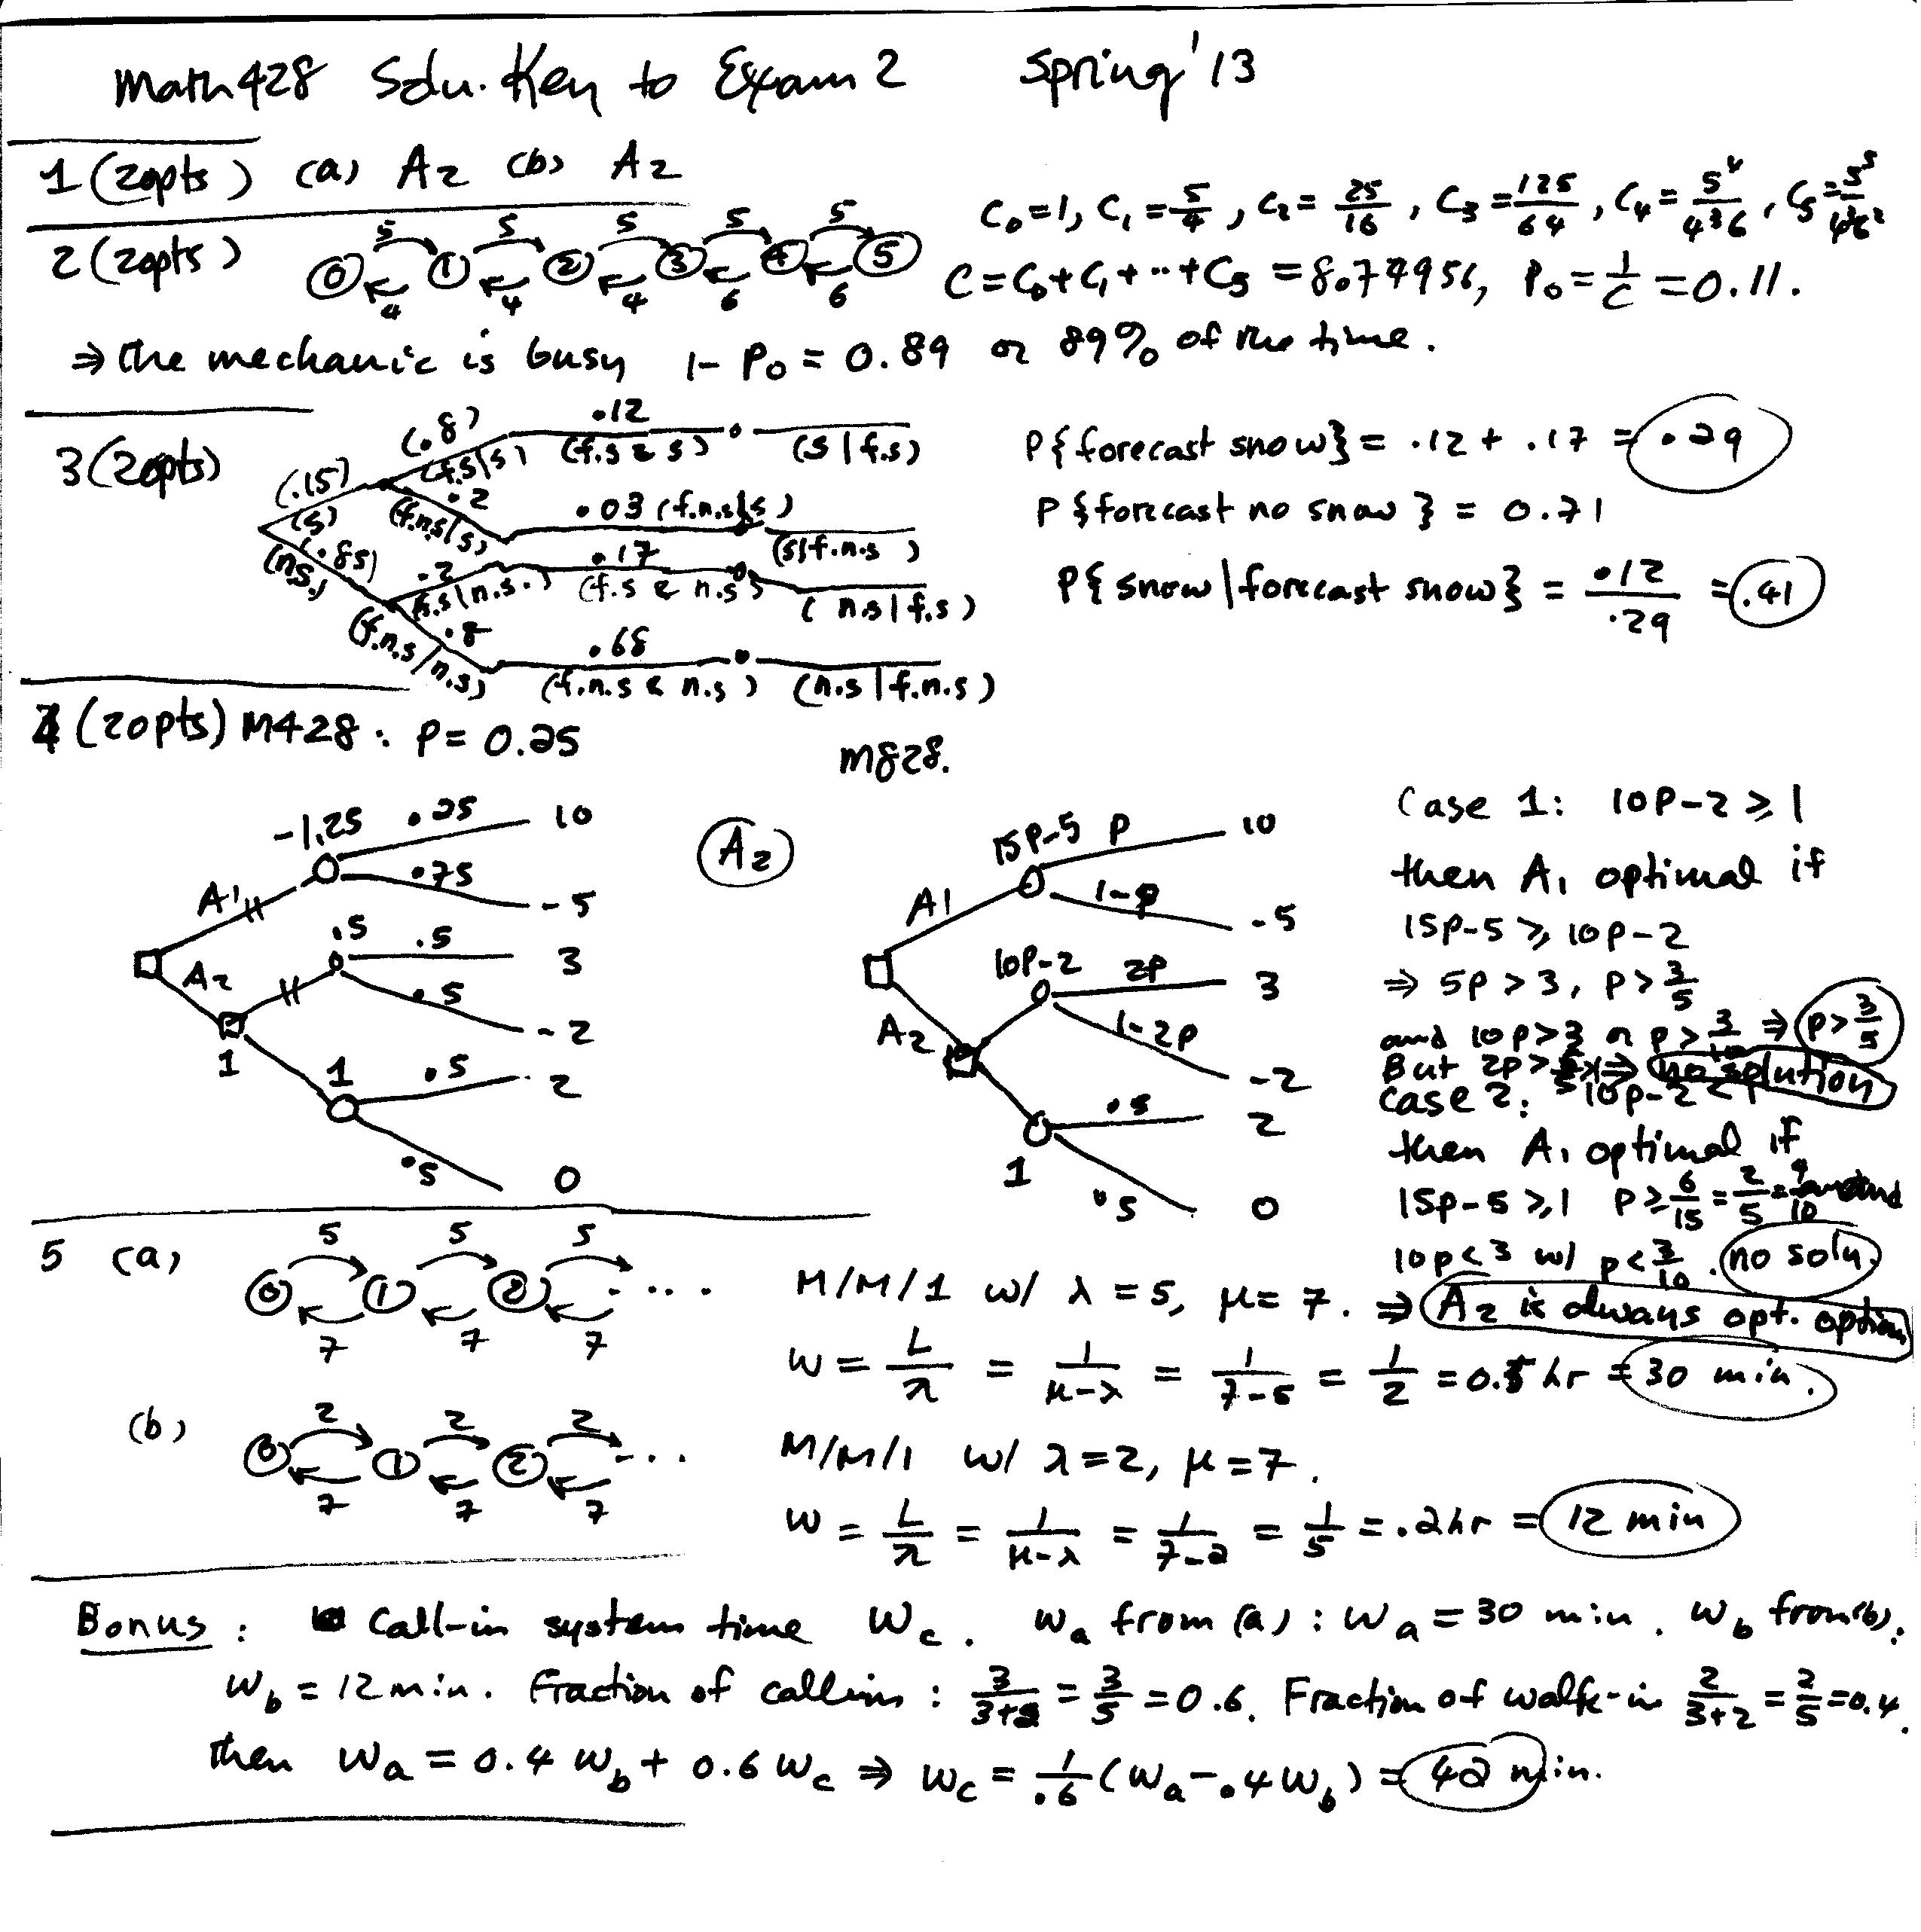 Math 428 Solu. Key to Exam 2 Spring '13
1 (20pts) (a) A2 (b) A2
2 (20pts) 0 1 2 3 4 5
5 5 5 5 5
4 4 4 6 6
C0=1, C1=5/4, C2=25/16, C3=125/64, C4=5^4/4^3 6, C5=5^5/4^3 6^2
C=C0+C1+...+C5 = 8.074956, P0=1/C=0.11.
⇒ the mechanic is busy 1-P0=0.89 or 89% of the time.
3 (20pts)
(.15) (.8) .12
(s) (f.s|s) (f.s & s) (s|f.s)
.2 .03 (f.n.s & s)
(f.n.s|s) (s|f.n.s)
(.85) .2 .17
(n.s.) (f.s|n.s.) (f.s & n.s) (n.s|f.s)
.8 .68
(f.n.s/n.s) (f.n.s & n.s) (n.s|f.n.s)
P{forecast snow} = .12 + .17 = .29
P{forecast no snow} = 0.71
P{snow|forecast snow} = .12/.29 = .41
4 (20pts) M428: P=0.25
-1.25 .25 10
A1 .75 -5
.5 .5 3
A2 .5 -2
1 1 .5 2
.5 0
A2
M828.
15P-5 P 10
A1 1-P -5
10P-2 2P 3
A2 1-2P -2
.5 2
1 .5 0
Case 1: 10P-2 ≥ 1
then A1 optimal if
15P-5 ≥ 10P-2
⇒ 5P > 3, P > 3/5
and 10P>3 or P>3/10 ⇒ P>3/5
But 2P> ⇒ no solution
Case 2: 10P-2 < 1
then A1 optimal if
15P-5 ≥ 1 P ≥ 6/15 = 2/5 = 4/10 and
10P<3 w/ P<3/10. no soln.
⇒ A2 is always opt. option
5 (a) 0 1 2 ...
5 5 5
7 7 7
M/M/1 w/ λ=5, μ=7.
W = L/λ = 1/μ-λ = 1/7-5 = 1/2 = 0.5 hr = 30 min.
(b) 0 1 2 ...
2 2 2
7 7 7
M/M/1 w/ λ=2, μ=7.
W = L/λ = 1/μ-λ = 1/7-2 = 1/5 = .2hr = 12 min
Bonus: Call-in system time Wc. Wa from (a): Wa=30 min. Wb from (b):
Wb=12min. Fraction of callins: 3/3+2 = 3/5 = 0.6. Fraction of walk-in 2/3+2 = 2/5 = 0.4.
Then Wa = 0.4 Wb + 0.6 Wc ⇒ Wc = 1/.6 (Wa-.4Wb) = 42 min.